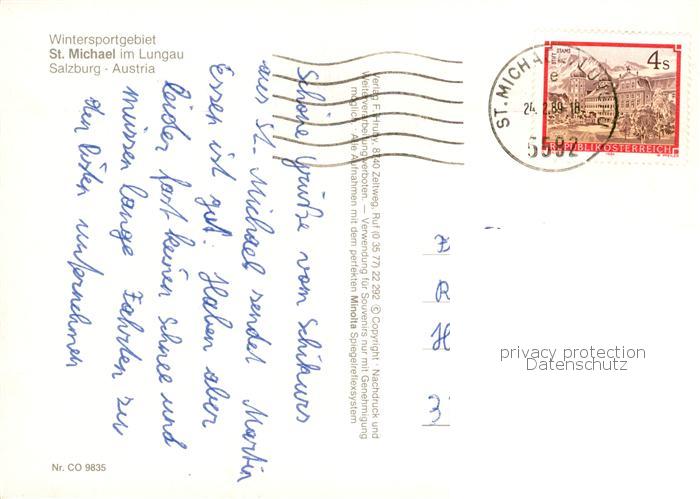 Wintersportgebiet
St. Michael im Lungau
Salzburg · Austria
Schöne Grüße vom Schikurs
aus St. Michael sendet Martin
Essen ist gut! Haben aber
leider fast keinen Schnee und
müssen lange Fahrten zu
den Liften unternehmen
Nr. CO 9835
Verlag F. Hruby, 8740 Zeltweg, Ruf (0 35 77) 22 292 © Copyright · Nachdruck und
Weiterverarbeitung verboten. — Verwendung für Souvenirs nur mit Genehmigung
möglich · Alle Aufnahmen mit dem perfekten Minolta Spiegelreflexsystem
STIFT STAMS
4 S
REPUBLIK ÖSTERREICH
ST. MICHAEL
24. 2. 89 - 18
e
5582
R
H
3
privacy protection
Datenschutz